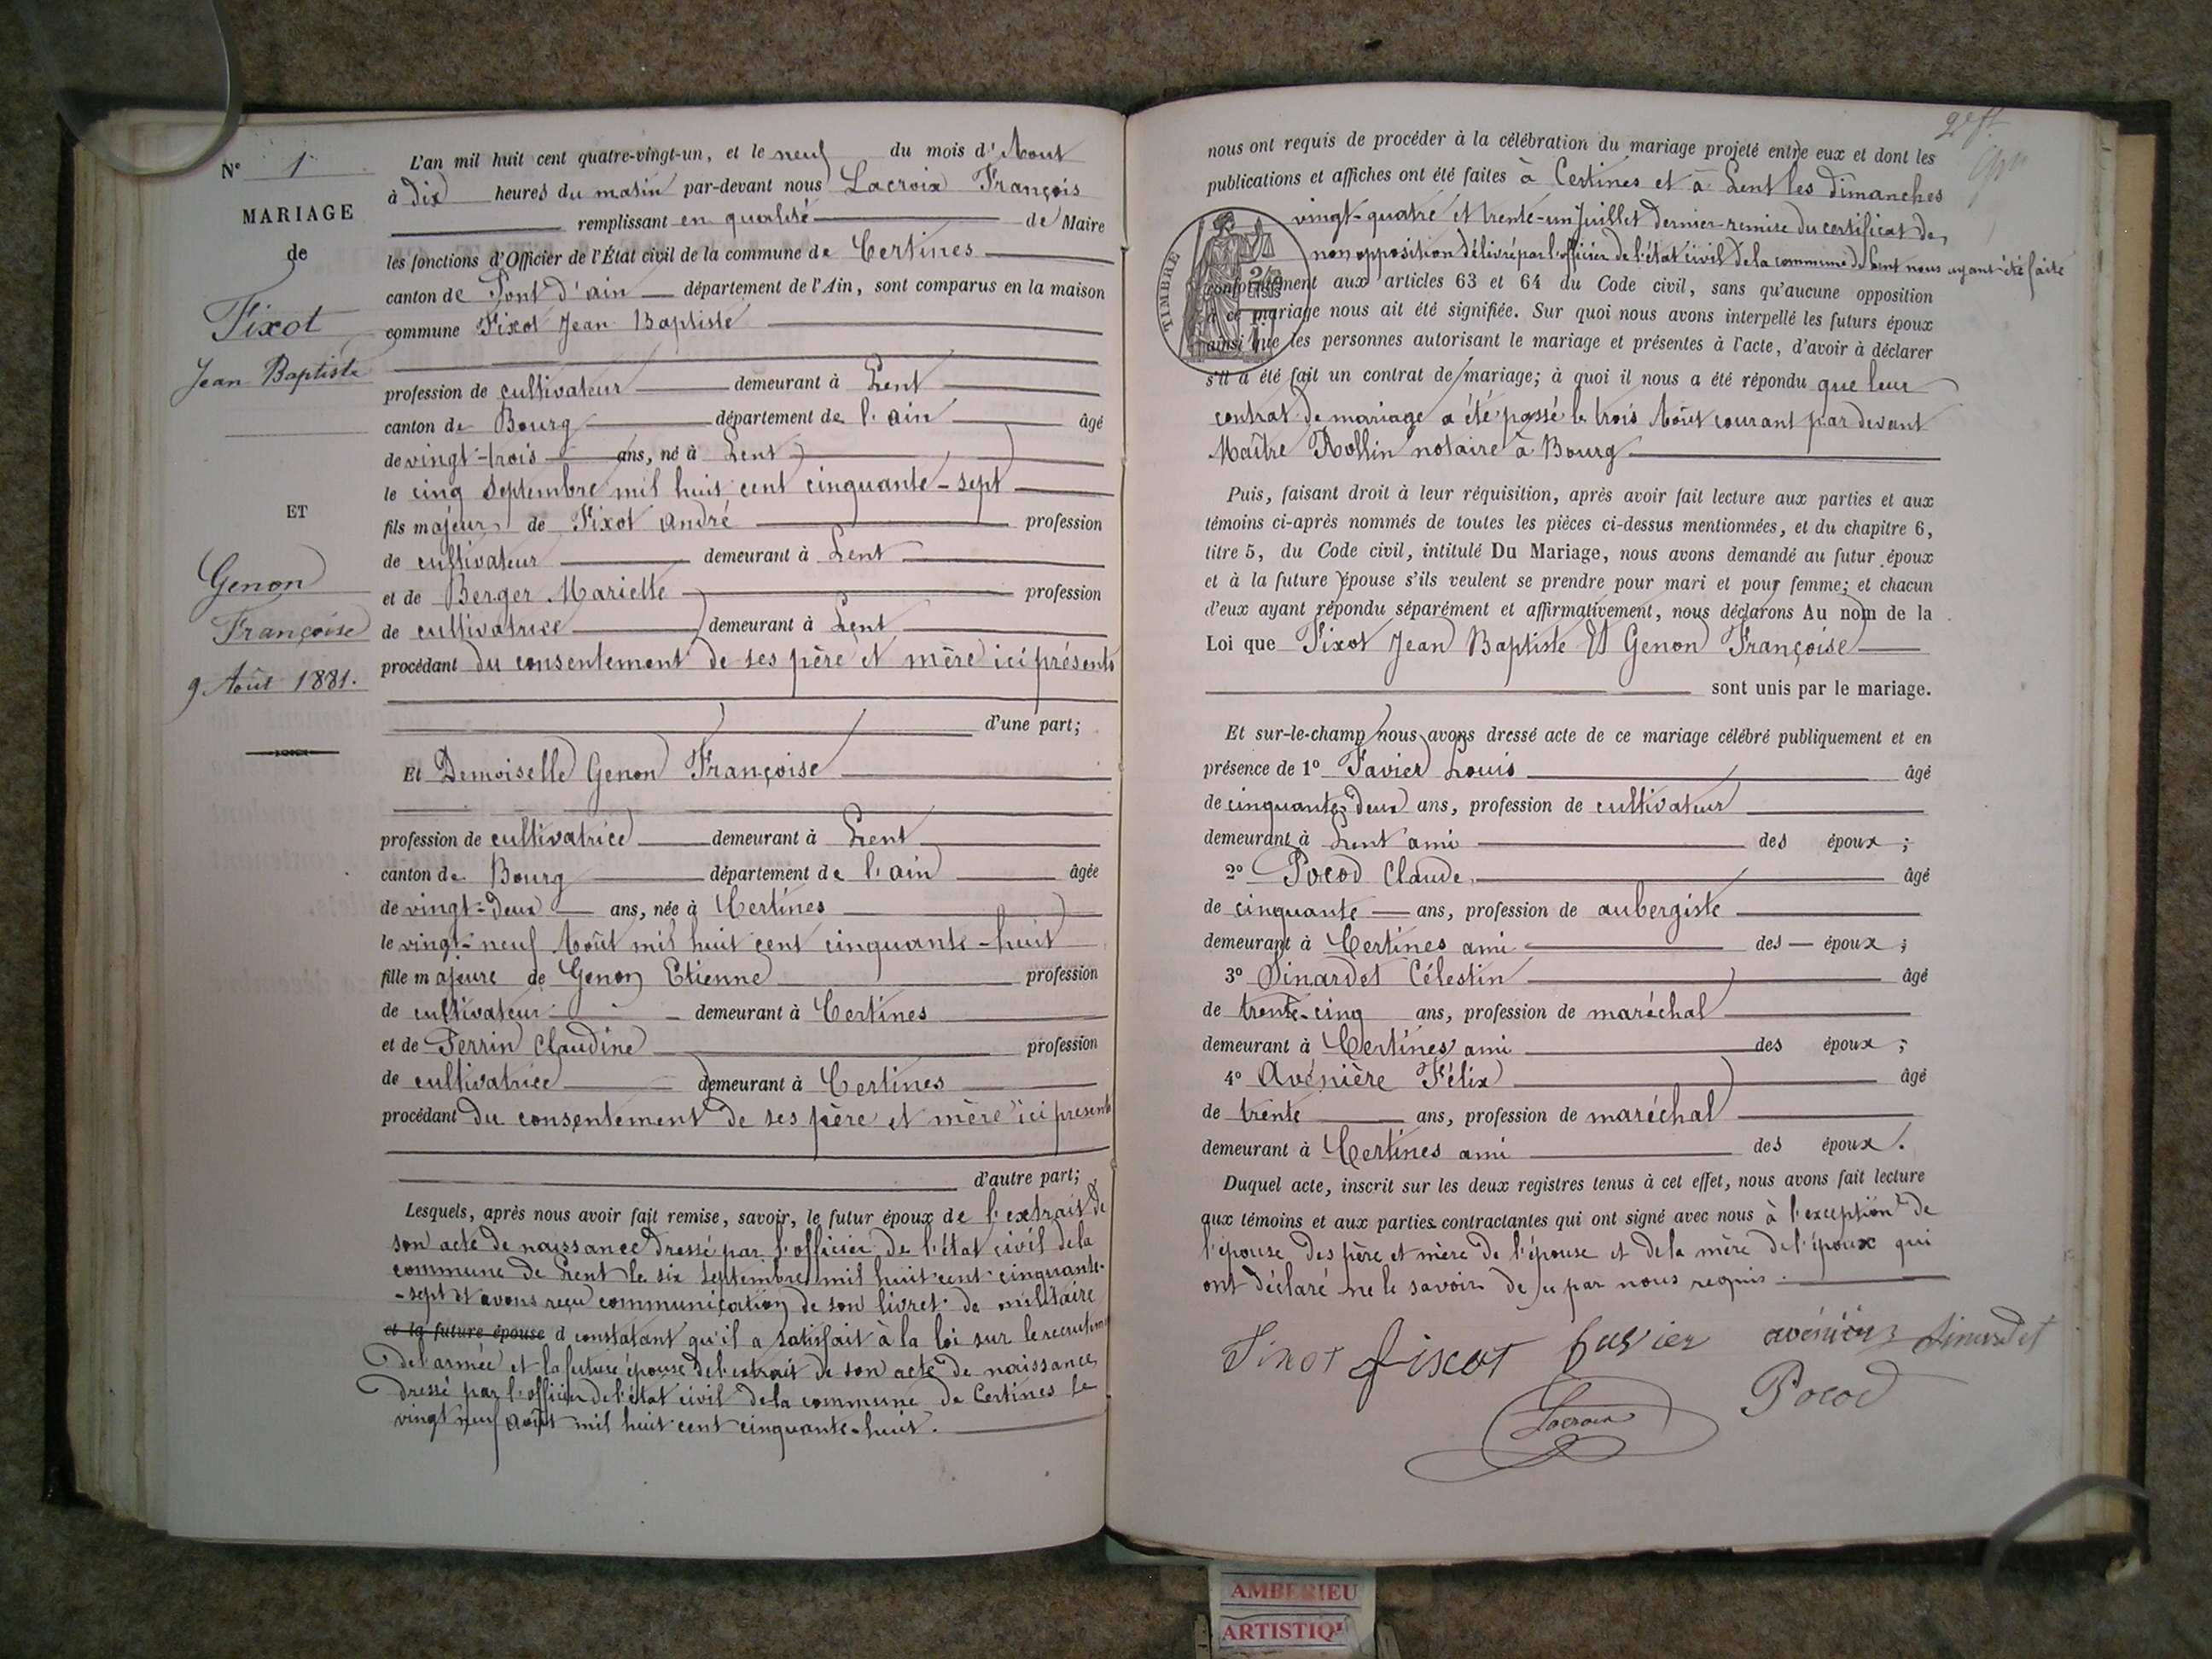 N° 1
MARIAGE
de
Fixot
Jean Baptiste
ET
Genon
Françoise
9 Août 1881.
L'an mil huit cent quatre-vingt-un, et le neuf du mois d'Aout
à dix heures du matin par-devant nous Lacroix François
remplissant en qualité de Maire
les fonctions d'Officier de l'État civil de la commune de Certines
canton de Pont d'ain département de l'Ain, sont comparus en la maison
commune Fixot Jean Baptiste
profession de cultivateur demeurant à Lent
canton de Bourg département de l'ain âgé
de vingt-trois ans, né à Lent
le cinq septembre mil huit cent cinquante-sept
fils majeur de Fixot andré profession
de cultivateur demeurant à Lent
et de Berger Mariette profession
de cultivatrice demeurant à Lent
procédant du consentement de ses père et mère ici présents
d'une part;
Et Demoiselle Genon Françoise
profession de cultivatrice demeurant à Lent
canton de Bourg département de l'ain âgée
de vingt-deux ans, née à Certines
le vingt-neuf Août mil huit cent cinquante-huit
fille majeure de Genon Etienne profession
de cultivateur demeurant à Certines
et de Perrin Claudine profession
de cultivatrice demeurant à Certines
procédant du consentement de ses père et mère ici présents
d'autre part;
Lesquels, après nous avoir fait remise, savoir, le futur époux de l'extrait de
son acte de naissance dressé par l'officier de l'état civil de la
commune de Lent le six septembre mil huit cent cinquante-
-sept et avons reçu communication de son livret de militaire
et la future épouse d constatant qu'il a satisfait à la loi sur le recrutement
de l'armée et la future épouse de l'extrait de son acte de naissance
dressé par l'officier de l'état civil de la commune de Certines le
vingt neuf août mil huit cent cinquante-huit.
nous ont requis de procéder à la célébration du mariage projeté entre eux et dont les
publications et affiches ont été faites à Certines et à Lent les dimanches
vingt-quatre et trente-un Juillet dernier-remise du certificat de
non opposition délivré par l'officier de l'état civil de la commune de Lent nous ayant été faite
TIMBRE
conformément aux articles 63 et 64 du Code civil, sans qu'aucune opposition
à ce mariage nous ait été signifiée. Sur quoi nous avons interpellé les futurs époux
ainsi que les personnes autorisant le mariage et présentes à l'acte, d'avoir à déclarer
s'il a été fait un contrat de mariage; à quoi il nous a été répondu que leur
contrat de mariage a été passé le trois Août courant par devant
Maître Rollin notaire à Bourg
Puis, faisant droit à leur réquisition, après avoir fait lecture aux parties et aux
témoins ci-après nommés de toutes les pièces ci-dessus mentionnées, et du chapitre 6,
titre 5, du Code civil, intitulé Du Mariage, nous avons demandé au futur époux
et à la future épouse s'ils veulent se prendre pour mari et pour femme; et chacun
d'eux ayant répondu séparément et affirmativement, nous déclarons Au nom de la
Loi que Fixot Jean Baptiste Et Genon Françoise
sont unis par le mariage.
Et sur-le-champ nous avons dressé acte de ce mariage célébré publiquement et en
présence de 1° Favier Louis âgé
de cinquante-deux ans, profession de cultivateur
demeurant à Lent ami des époux;
2° Pocod Claude âgé
de cinquante ans, profession de aubergiste
demeurant à Certines ami des époux;
3° Dinardet Célestin âgé
de trente-cinq ans, profession de maréchal
demeurant à Certines ami des époux;
4° Avénière Félix âgé
de trente ans, profession de maréchal
demeurant à Certines ami des époux.
Duquel acte, inscrit sur les deux registres tenus à cet effet, nous avons fait lecture
aux témoins et aux parties contractantes qui ont signé avec nous à l'exception de
l'épouse des père et mère de l'épouse et de la mère de l'époux qui
ont déclaré ne le savoir de ce par nous requis.
Fixot fixot favier avénière Dinardet
Lacroix Pocod
AMBERIEU
ARTISTIQ